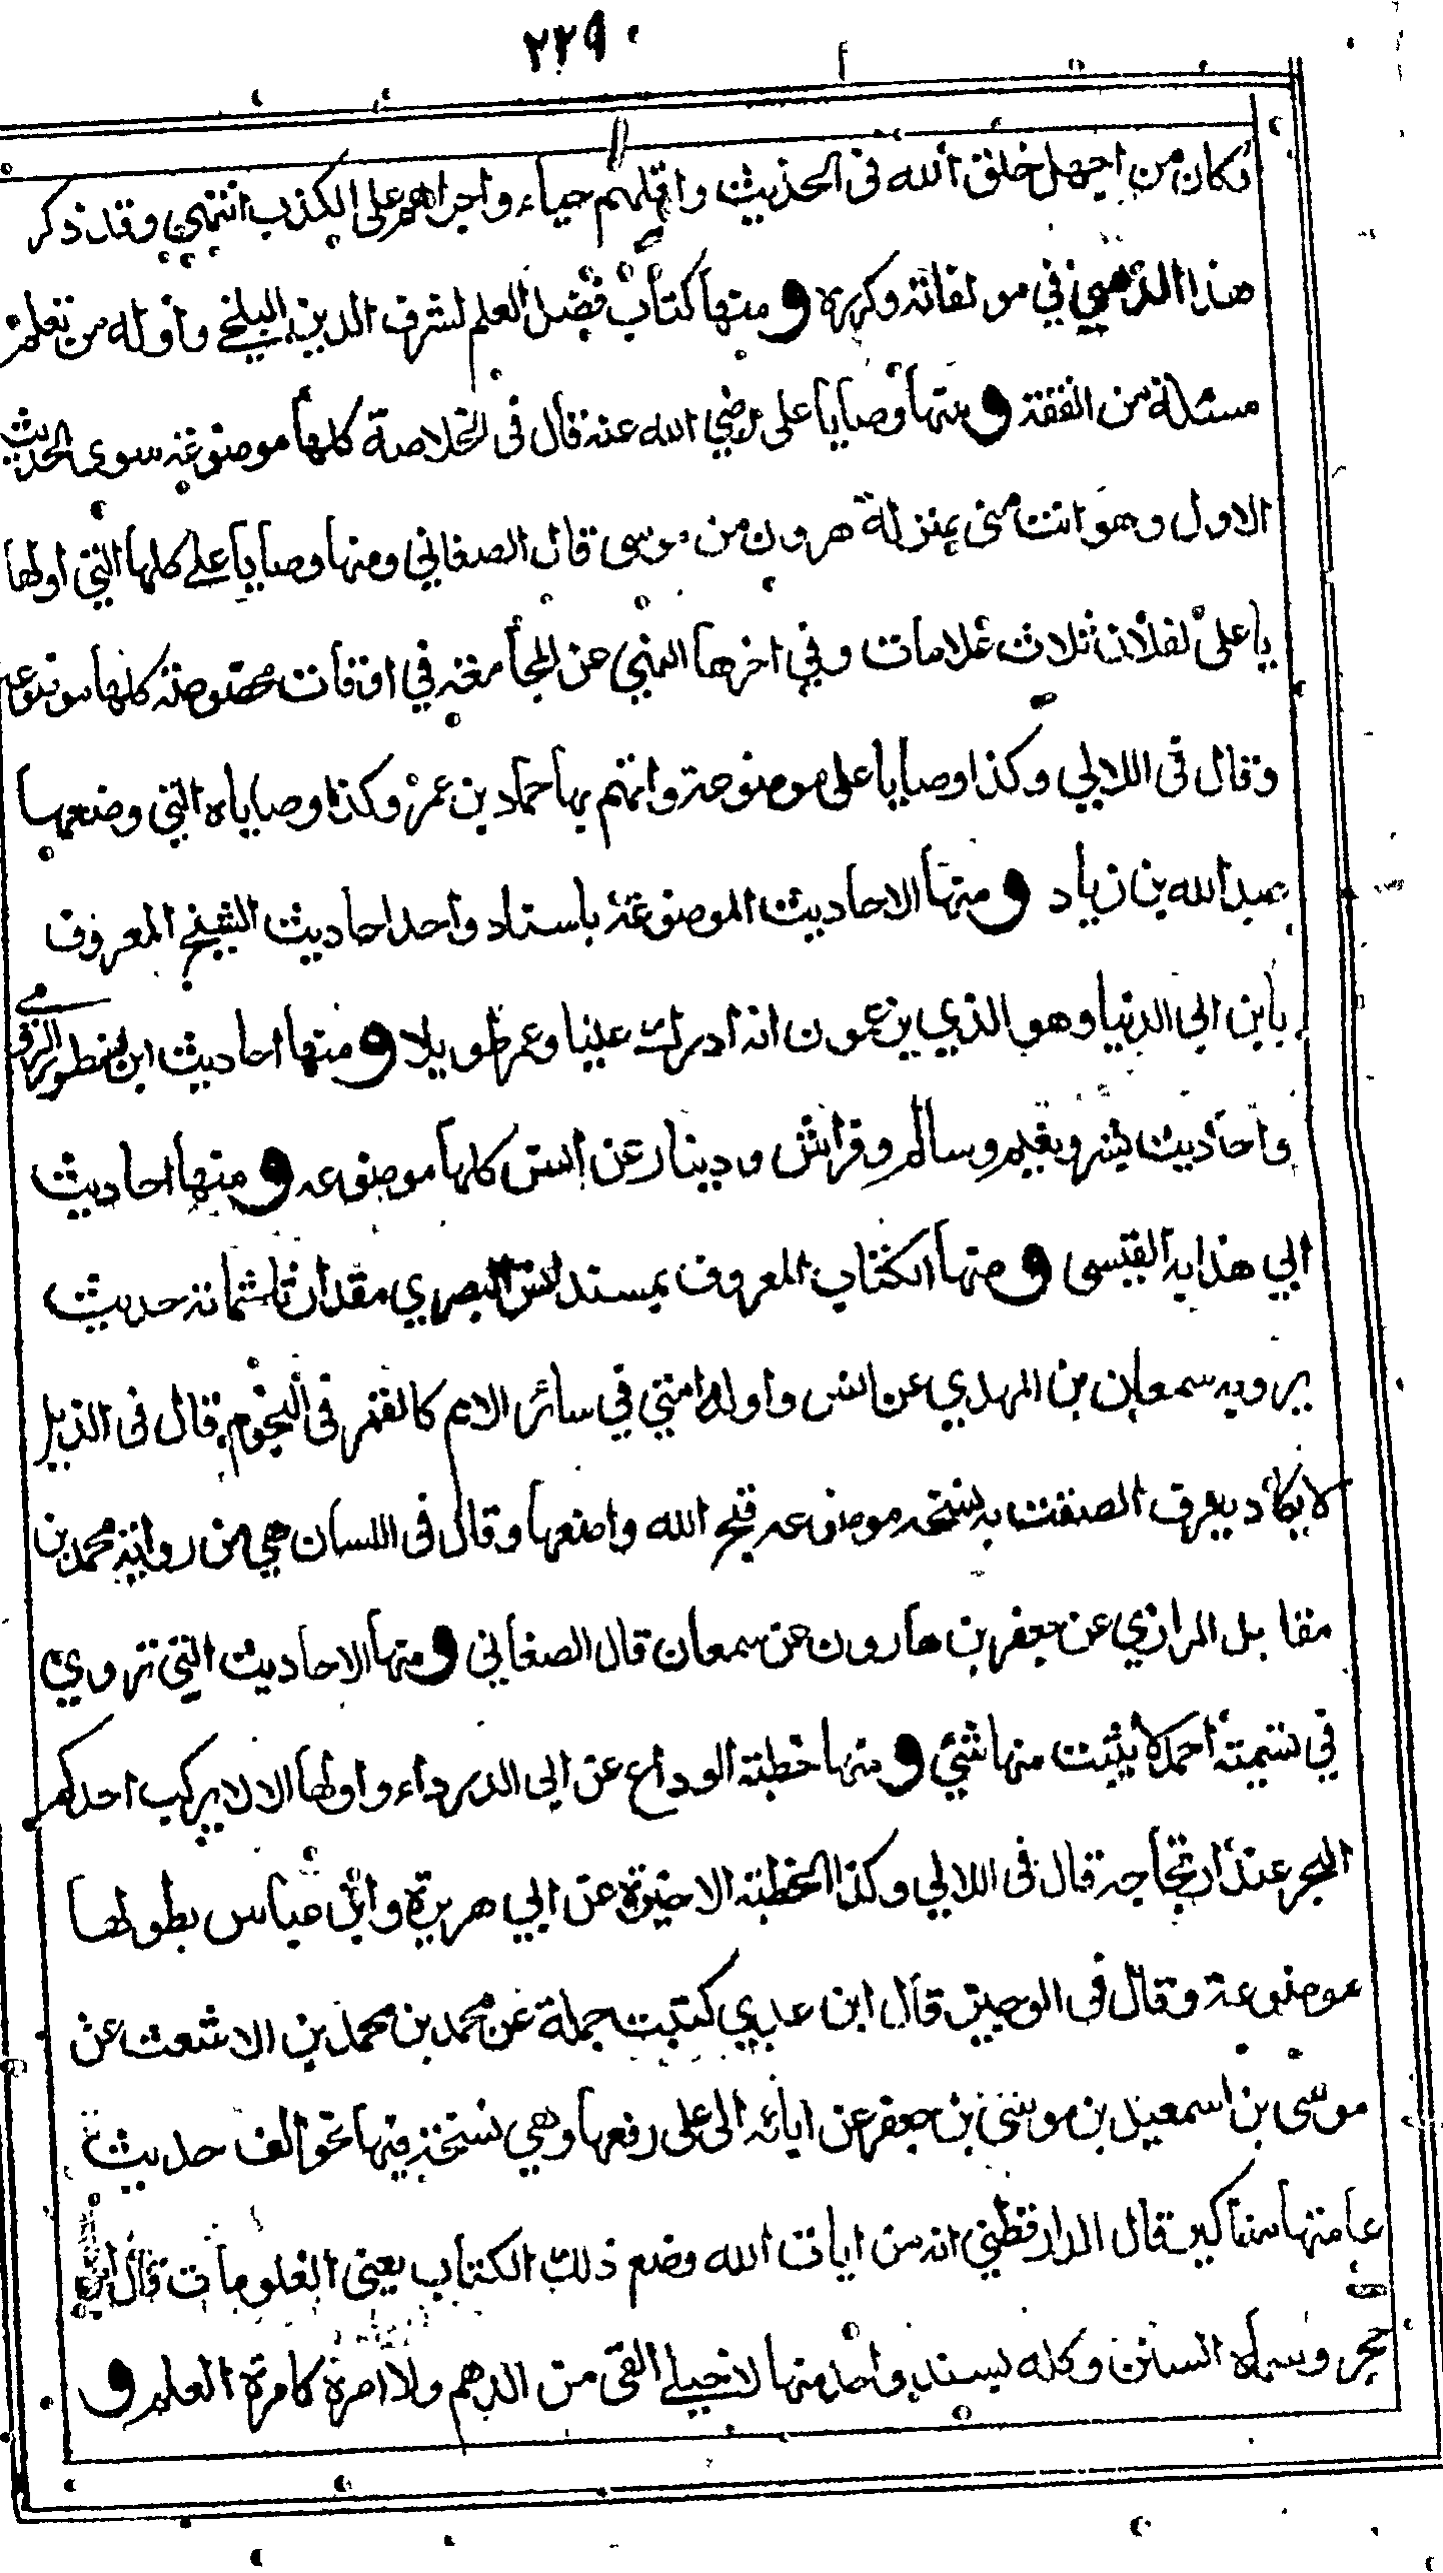 ٢٢٩٠
فكان من اجهل خلق الله في الحديث واقلهم حياء واجراهم على الكذب انتهى وقد ذكر
هذا الذهبي في مولفاته وكرره ومنها كتاب فضل العلم لشرف الدين البلخي واوله من تعلم
مسئلة من الفقه ومنها وصايا على رضي الله عنه قال في الخلاصة كلها موضوعه سوى الحديث
الاول وهو انت منى بمنزلة هرون من موسى قال الصغاني ومنها وصايا علي كلها التي اولها
يا على لفلان ثلاث علامات وفي اخرها النهي عن المجامعه في اوقات مخصوصه كلها موضوعه
وقال في اللالي وكذا وصايا على موضوعة واتهم بها حماد بن عمرو وكذا وصاياه التي وضعها
عبد الله بن زياد ومنها الاحاديث الموضوعة باسناد واحد احاديث الشيخ المعروف
بابن ابي الدنيا وهو الذي يزعمون انه ادرك عليا وعمر طويلا ومنها احاديث ابن نسطور الرومي
واحاديث يسر ويغيم وسالم وخراش ودينار عن انس كلها موضوعه ومنها احاديث
ابي هدابه القيسى ومنها الكتاب المعروف بمسند انس البصري مقدار ثلثمائة حديث
يرويه سمعان بن المهدي عن انس واوله امتي في سائر الامم كالقمر في النجوم قال في الذيل
لا يكاد يعرف الصقت به نسخه موضوعه قبح الله واضعها وقال في اللسان هي من رواية محمد بن
مقاتل الرازي عن جعفر بن هارون عن سمعان قال الصغاني ومنها الاحاديث التي تروي
في تسميته احمد لا يثبت منها شئ ومنها خطبة الوداع عن ابي الدرداء واولها الا لا يركب احدكم
البحر عند ارتجاجه قال في اللالي وكذا الخطبة الاخيرة عن ابي هريرة وابن عباس بطولها
موضوعة وقال في الوجيز قال ابن عدي كتبت جملة عن محمد بن محمد بن الاشعث عن
موسى بن اسمعيل بن موسى بن جعفر عن ابائه الى على رفعها وهي نسخة فيها نحو الف حديث
عامتها مناكير قال الدارقطني انه من ايات الله وضع ذلك الكتاب يعنى العلويات قال ابن
حجر وسماه السنن وكله بسند واحد منها لا خيل القى من الدهم ولا امرة كامرة العلم و